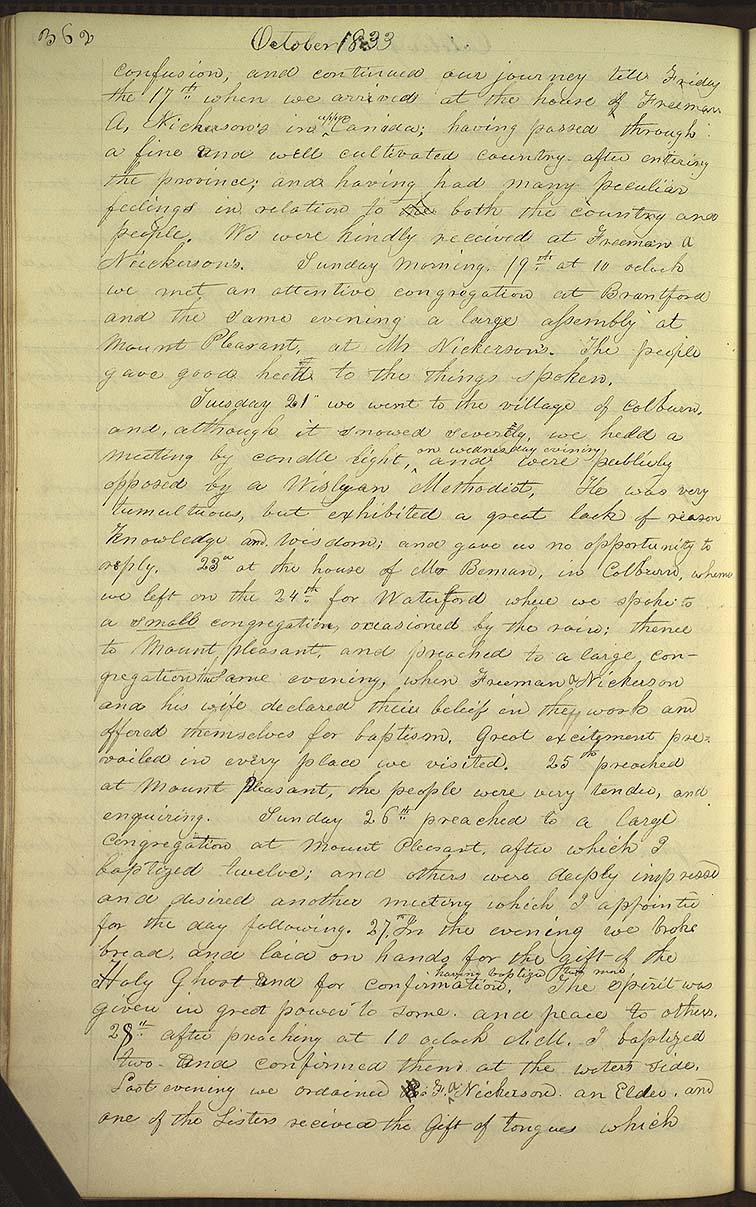 362
October 1833
confusion, and continued our journey till Friday
the 17th when we arrived at the house of Freeman
A, Nickerson's in upper Canada; having passed through
a fine and well cultivated country after entering
the province; and having had many peculiar
feelings in relation to both the country and
people. We were kindly received at Freeman A
Nickerson's. Sunday morning. 19th at 10 oclock
we met an attentive congregation at Brantford
and the same evening a large assembly at
Mount Pleasant, at Mr Nickerson's. The people
gave good heed to the things spoken.
Tuesday 21" we went to the village of Colburn,
and, although it snowed severely, we held a
meeting by candle light, on wednesday evening, and were publicly
opposed by a Wislyan Methodist, He was very
tumultuous, but exhibited a great lack of reason
Knowledge and wisdom; and gave us no opportunity to
reply. 23d at the house of Mr Beman, in Colburn, whence
we left on the 24th for Waterford where we spoke to
a small congregation, occasioned by the rain; thence
to Mount pleasant, and preached to a large con-
gregation the same evening, when Freeman A Nickerson
and his wife declared their belief in the work and
offered themselves for baptism. Great excitement pre=
vailed in every place we visited. 25th preached
at Mount Pleasant, the people were very tender, and
enquiring. Sunday 26th preached to a large
congregation at Mount Pleasant, after which I
baptized twelve; and others were deeply impressed
and desired another meeting which I appointed
for the day following. 27th In the evening we broke
bread, and laid on hands for the gift of the
Holy Ghost and for confirmation, having baptized two more The spirit was
given in great power to some, and peace to others.
28th after preaching at 10 oclock A.M. I baptized
two and confirmed them at the waters side.
Last evening we ordained F. A Nickerson an Elder, and
one of the Sisters received the Gift of tongues which